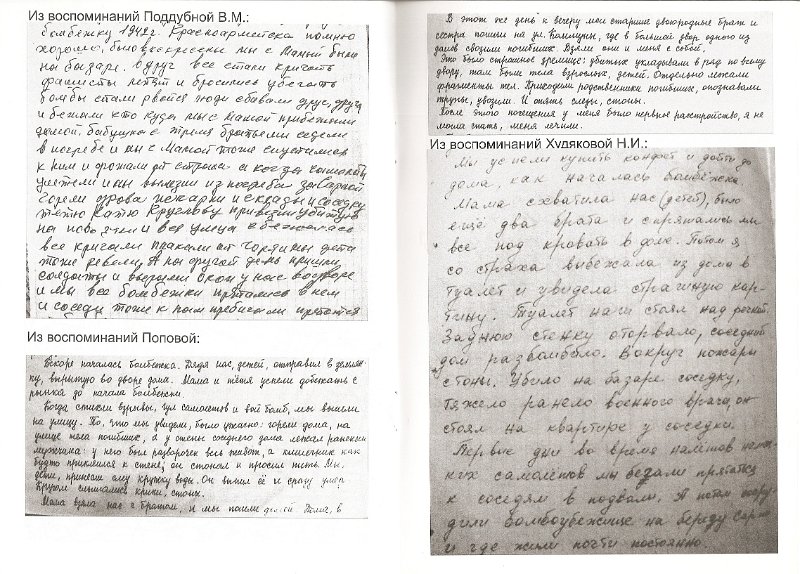 Из воспоминаний Поддубной В.М.:
бомбежку 1942г. Красноармейска помню
хорошо, было воскресенье мы с Мамой были
на базаре. Вдруг все стали кричать
фашисты летят и бросились убегать
бомбы стали рваться люди сбивали друг друга
и бежали кто куда мы с мамой прибежали
домой. бабушка с тремя братьями сидели
в погребе и мы с Мамой тоже спустились
к ним и дрожали от страха а когда
улетели и мы вылезли из погреба за
горели дрова пекарни и склады и соседку
тетю Катю Круглову привезли убитую
и вся улица сбежалась
все кричали плакали от картины дети
тоже ревели. А на другой день пришли
солдаты и вырыли окоп у нас во дворе
и мы все бомбежки прятались в нем
и соседи тоже к нам прибегали прятатся
Из воспоминаний Поповой:
Вскоре началась бомбежка. Дядя нас, детей, отправил в землян-
ку, вырытую во дворе дома. Мама и тётя успели добежать с
рынка до начала бомбежки.
Когда стихли взрывы, гул самолетов и вой бомб, мы вышли
на улицу. То, что мы увидели, было ужасно: горели дома, на
улице тела погибших, а у стены соседнего дома лежал раненый
мужчина: у него был разворочен весь живот, а кишечник как
будто приклеился к стене; он стонал и просил пить. Мы,
дети, принесли ему кружку воды. Он выпил её и сразу умер.
Кругом слышались крики, стоны.
Мама взяла нас с братом, и мы пошли домой. Дома, в
В этот же день к вечеру мои старшие двоюродные брат и
сестра пошли на ул. Коммуны, где в большой двор одного из
домов свозили погибших. Взяли они и меня с собой.
Это было страшное зрелище: убитых укладывали в ряд по всему
двору, там были тела взрослых, детей. Отдельно лежали
фрагменты тел. Приходили родственники погибших, опознавали
трупы, увозили. И опять слезы, стоны.
После этого посещения у меня было нервное расстройство, я не
могла спать, меня лечили.
Из воспоминаний Худяковой Н.И.:
Мы успели купить конфет и дойти до
дома, как началась бомбёжка
Мама схватила нас (детей), было
ещё два брата и спрятались мы
все под кровать в доме. Потом я
со страха выбежала из дома в
туалет и увидела страшную кар-
тину. Туалет наш стоял над речкой.
Заднюю стенку оторвало, соседний
дом разбомбило. Вокруг пожары
стоны. Убило на базаре соседку,
тяжело ранело военного врача, он
стоял на квартире у соседки.
Первые дни во время налётов немец-
ких самолётов мы бегали прятатся
к соседям в подвалы. А потом
дили бомбоубежище на берегу
и где жили почти постоянно.